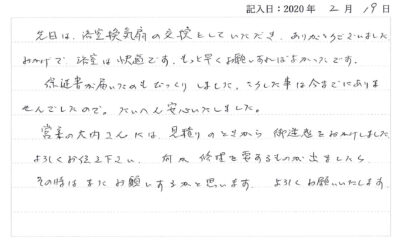 記入日：2020年 2月 19日
先日は、浴室換気扇の交換をしていただき、ありがとうございました。
おかげで、浴室は快適です。もっと早くお願いすればよかったです。
保証書が届いたのもびっくりしました。こうした事は今までにありま
せんでしたので。たいへん安心いたしました。
営業の大内さんには、見積りのときから御迷惑をおかけしました。
よろしくお伝え下さい。何か修理を要するものが出ましたら、
その時はまたお願いするかと思います。よろしくお願いいたします。